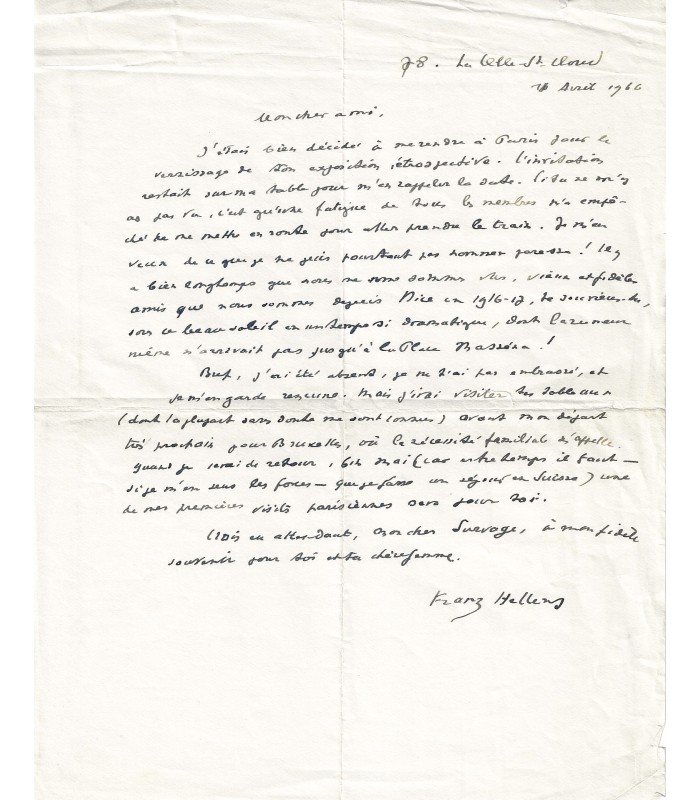 78. La Celle-St Cloud
16 Avril 1966
Mon cher ami,
J'étais bien décidé à me rendre à Paris pour le
vernissage de ton exposition rétrospective. L'invitation
restait sur ma table pour m'en rappeler la date. Si tu ne m'y
as pas vu, c'est qu'une fatigue de tous les membres m'a empê-
ché de me mettre en route pour aller prendre le train. Je m'en
veux de ce que je ne puis pourtant pas nommer paresse ! Il y
a bien longtemps que nous ne nous sommes vus, vieux et fidèles
amis que nous sommes depuis Nice en 1916-17, te souviens-tu,
sous ce beau soleil en un temps si dramatique, dont la rumeur
même n'arrivait pas jusqu'à la Place Masséna !
Bref, j'ai été absent, je ne t'ai pas embrassé, et
je m'en garde rancune. Mais j'irai visiter tes tableaux
(dont la plupart sans doute me sont connus) avant mon départ
très prochain pour Bruxelles, où la nécessité familiale m'appelle.
Quand je serai de retour, fin mai (car entretemps il faut —
si je m'en sens les forces — que je fasse un séjour en Suisse) une
de mes premières visites parisiennes sera pour toi.
Crois en attendant, mon cher Survage, à mon fidèle
souvenir pour toi et ta chère femme.
Franz Hellens